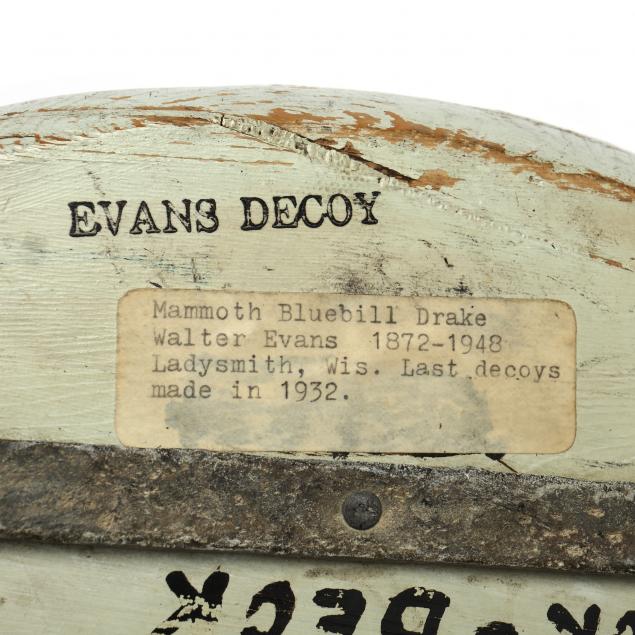 EVANS DECOY
Mammoth Bluebill Drake
Walter Evans 1872-1948
Ladysmith, Wis. Last decoys
made in 1932.